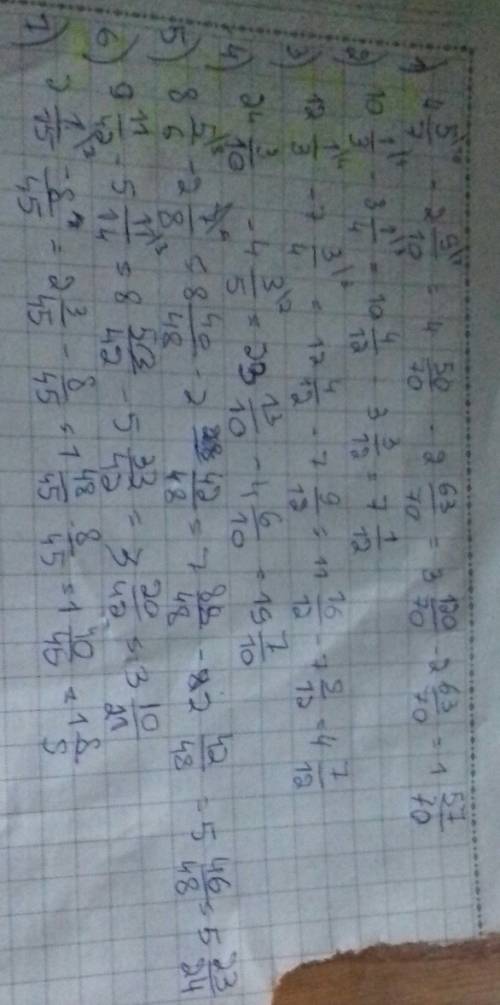 1) 4 5/7\10 - 2 9/10\7 = 4 50/70 - 2 63/70 = 3 120/70 - 2 63/70 = 1 57/70
2) 10 1/3\4 - 3 1/4\3 = 10 4/12 - 3 3/12 = 7 1/12
3) 12 1/3\4 - 7 3/4\3 = 12 4/12 - 7 9/12 = 11 16/12 - 7 9/12 = 4 7/12
4) 24 3/10 - 4 3/5\2 = 23 13/10 - 4 6/10 = 19 7/10
5) 8 5/6\8 - 2 7/8\6 = 8 40/48 - 2 42/48 = 7 88/48 - 2 42/48 = 5 46/48 = 5 23/24
6) 9 11/42 - 5 11/14\3 = 8 53/42 - 5 33/42 = 3 20/42 = 3 10/21
7) 2 1/15\3 - 8/45 = 2 3/45 - 8/45 = 1 48/45 - 8/45 = 1 40/45 = 1 8/9